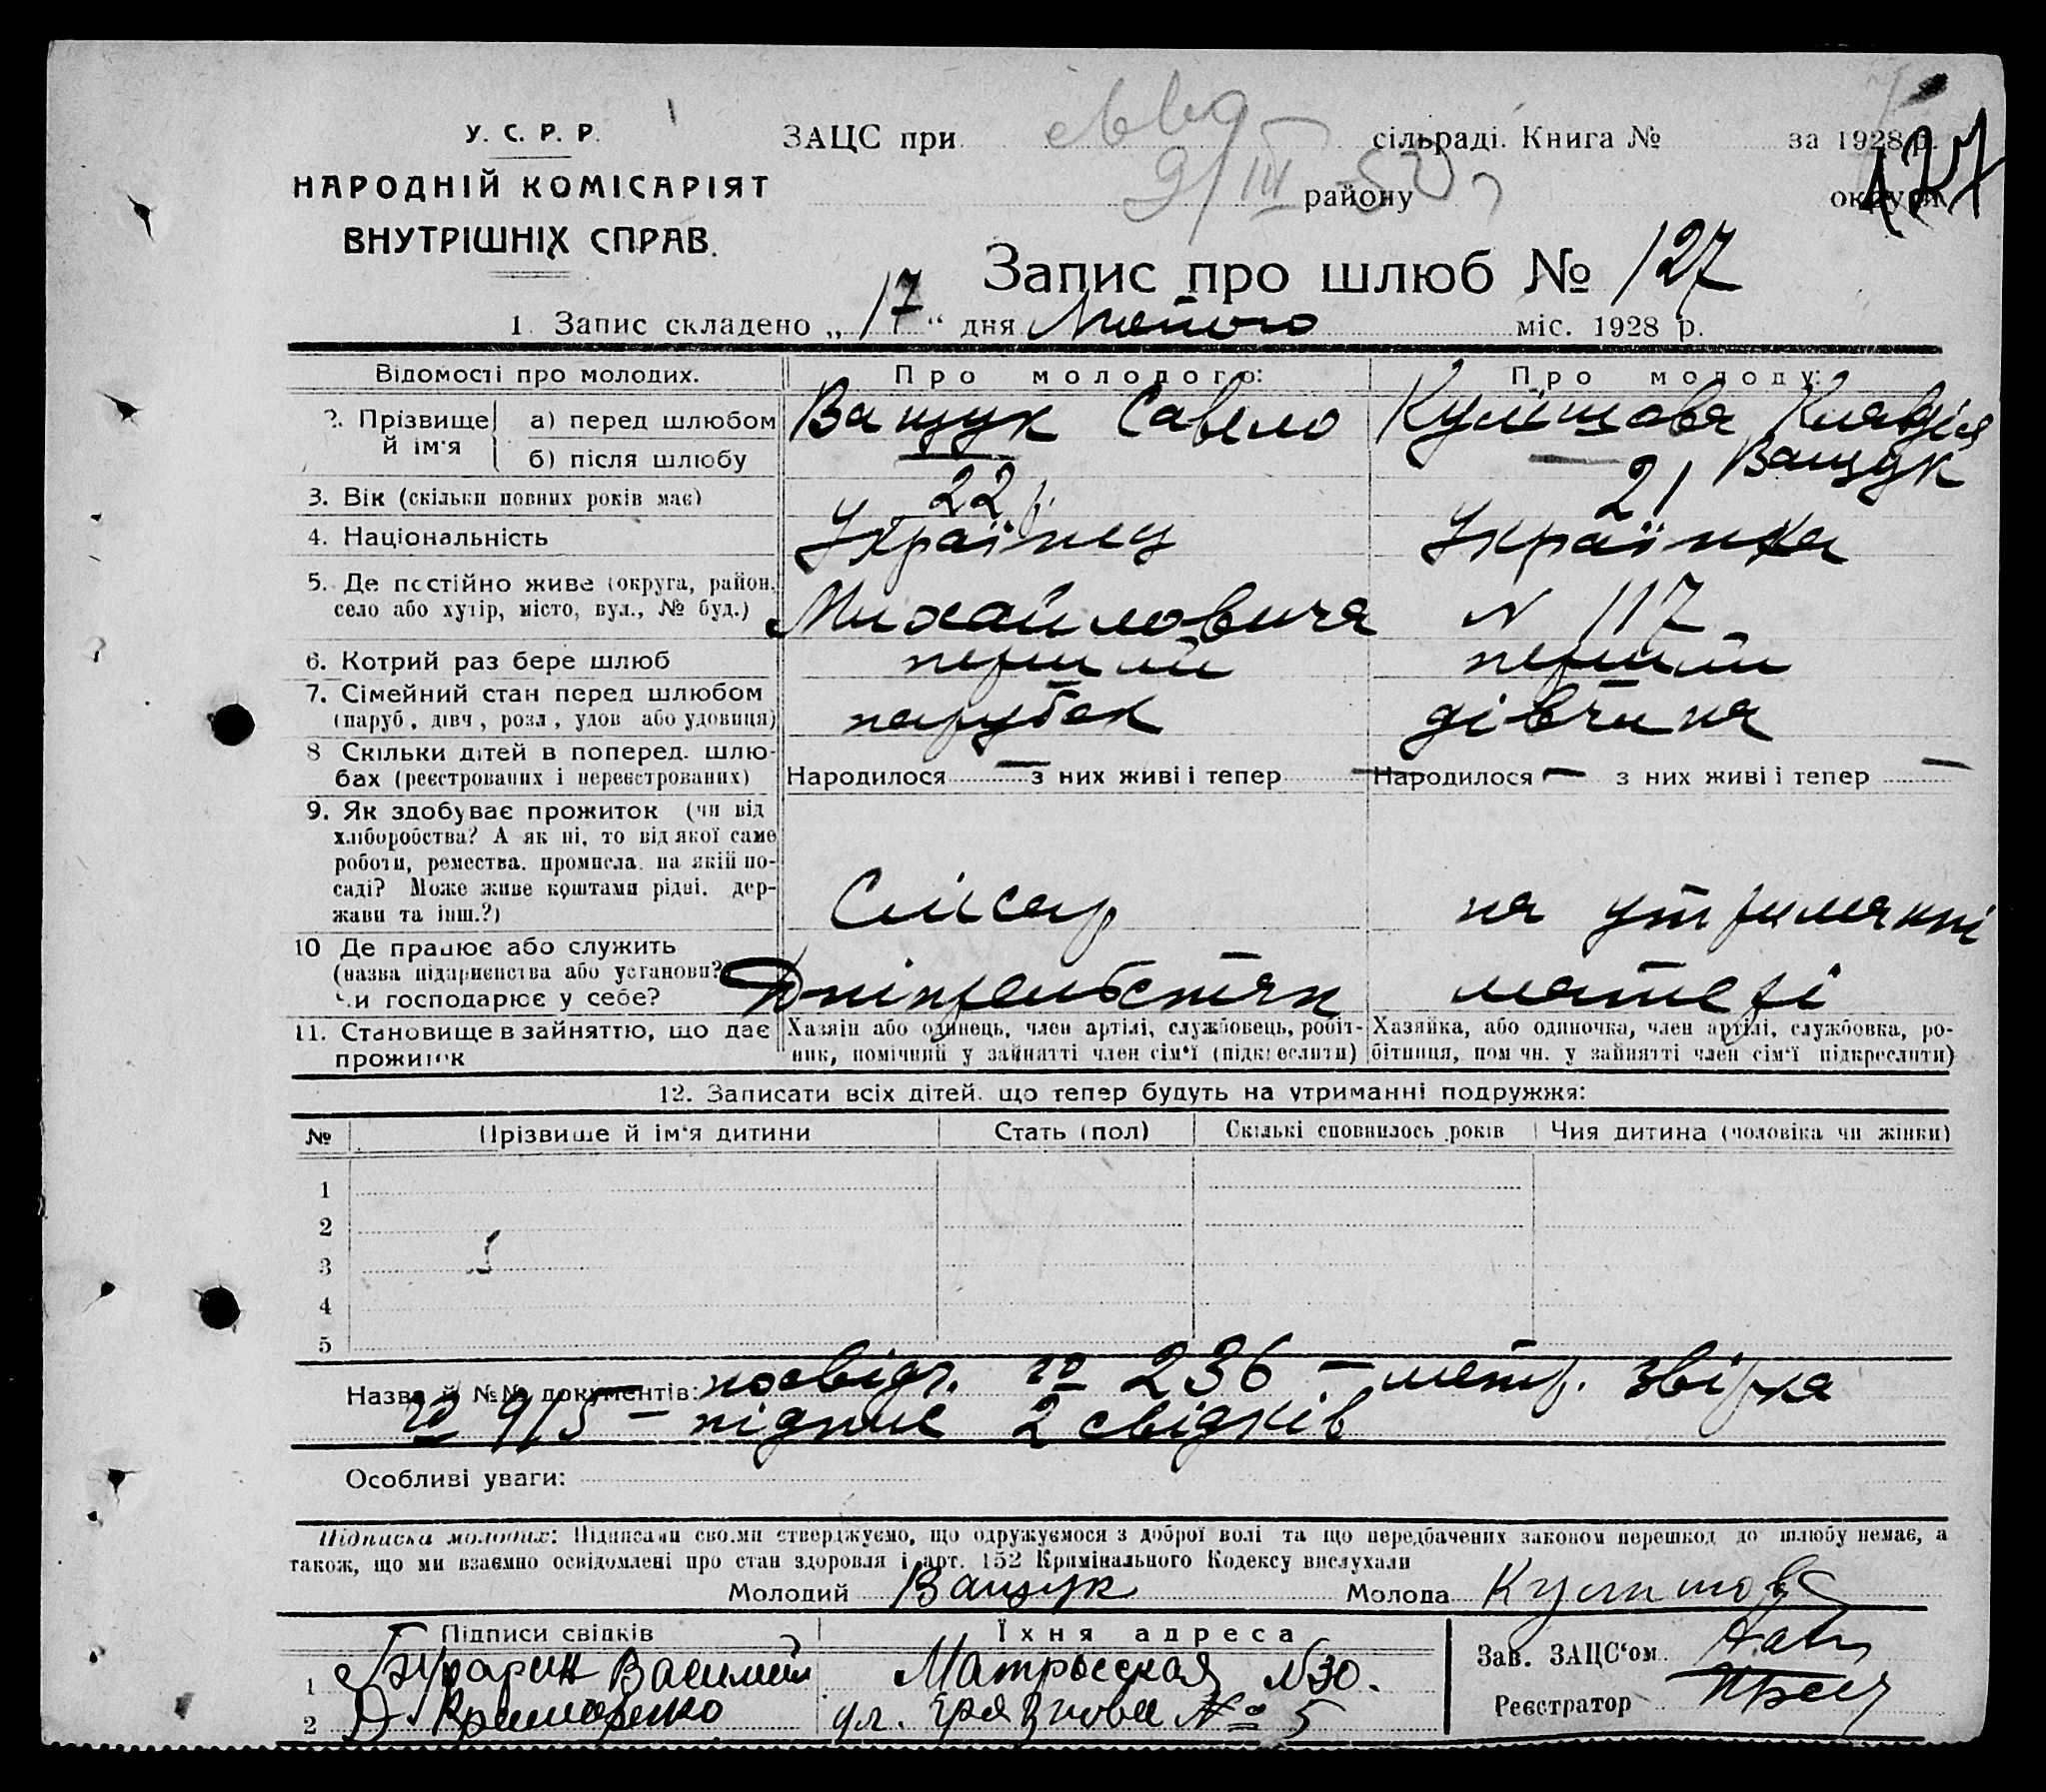 У. С. Р. Р.
НАРОДНІЙ КОМІСАРІЯТ
ВНУТРІШНІХ СПРАВ.
ЗАЦС при сільраді. Книга № за 1928 р.
9/III району округи
127
Запис про шлюб № 127
1. Запис складено „17“ дня Лютого міс. 1928 р.
Відомості про молодих. Про молодого: Про молоду:
2. Прізвище й ім'я а) перед шлюбом Ващук Савело Кулішова Клавдія
б) після шлюбу — Ващук
3. Вік (скільки повних років має) 22 21
4. Національність Українець Українка
5. Де постійно живе (округа, район, село або хутір, місто, вул., № буд.) Михайловича N 117
6. Котрий раз бере шлюб перший перший
7. Сімейний стан перед шлюбом (паруб., дівч., розл., удов. або удовиця) парубок дівчина
8 Скільки дітей в поперед. шлюбах (реєстрованих і нереєстрованих) Народилося — з них живі і тепер — Народилося — з них живі і тепер —
9. Як здобуває прожиток (чи від хліборобства? А як ні, то від якої саме роботи, ремества, промисла, на якій посаді? Може живе коштами рідні, держави та інш.?) Слюсар на утриманні
10 Де працює або служить (назва підприємства або установи?) Чи господарює у себе? матері
11. Становище в зайняттю, що дає прожиток Хазяїн або одинець, член артілі, службовець, робітник, помічний у зайнятті член сім'ї (підкреслити) Хазяйка, або одиночка, член артілі, службовка, робітниця, помічн. у зайнятті член сім'ї підкреслити)
12. Записати всіх дітей, що тепер будуть на утриманні подружжя:
№ Прізвище й ім'я дитини Стать (пол) Скількі сповнилось років Чия дитина (чоловіка чи жінки)
1
2
3
4
5
Назва й №№ документів: посвідч. № 236 – метр. звірка
№ 915 – підпис 2 свідків
Особливі уваги:
Підписка молодих: Підписами своїми стверджуємо, що одружуємося з доброї волі та що передбачених законом перешкод до шлюбу немає, а
також, що ми взаємно освідомлені про стан здоровля і арт. 152 Кримінального Кодексу вислухали
Молодий Ващук Молода Кулишова
Підписи свідків Їхня адреса Зав. ЗАЦС'ом
1 Василий Матросская N 30.
2 ул. № 5 Реєстратор